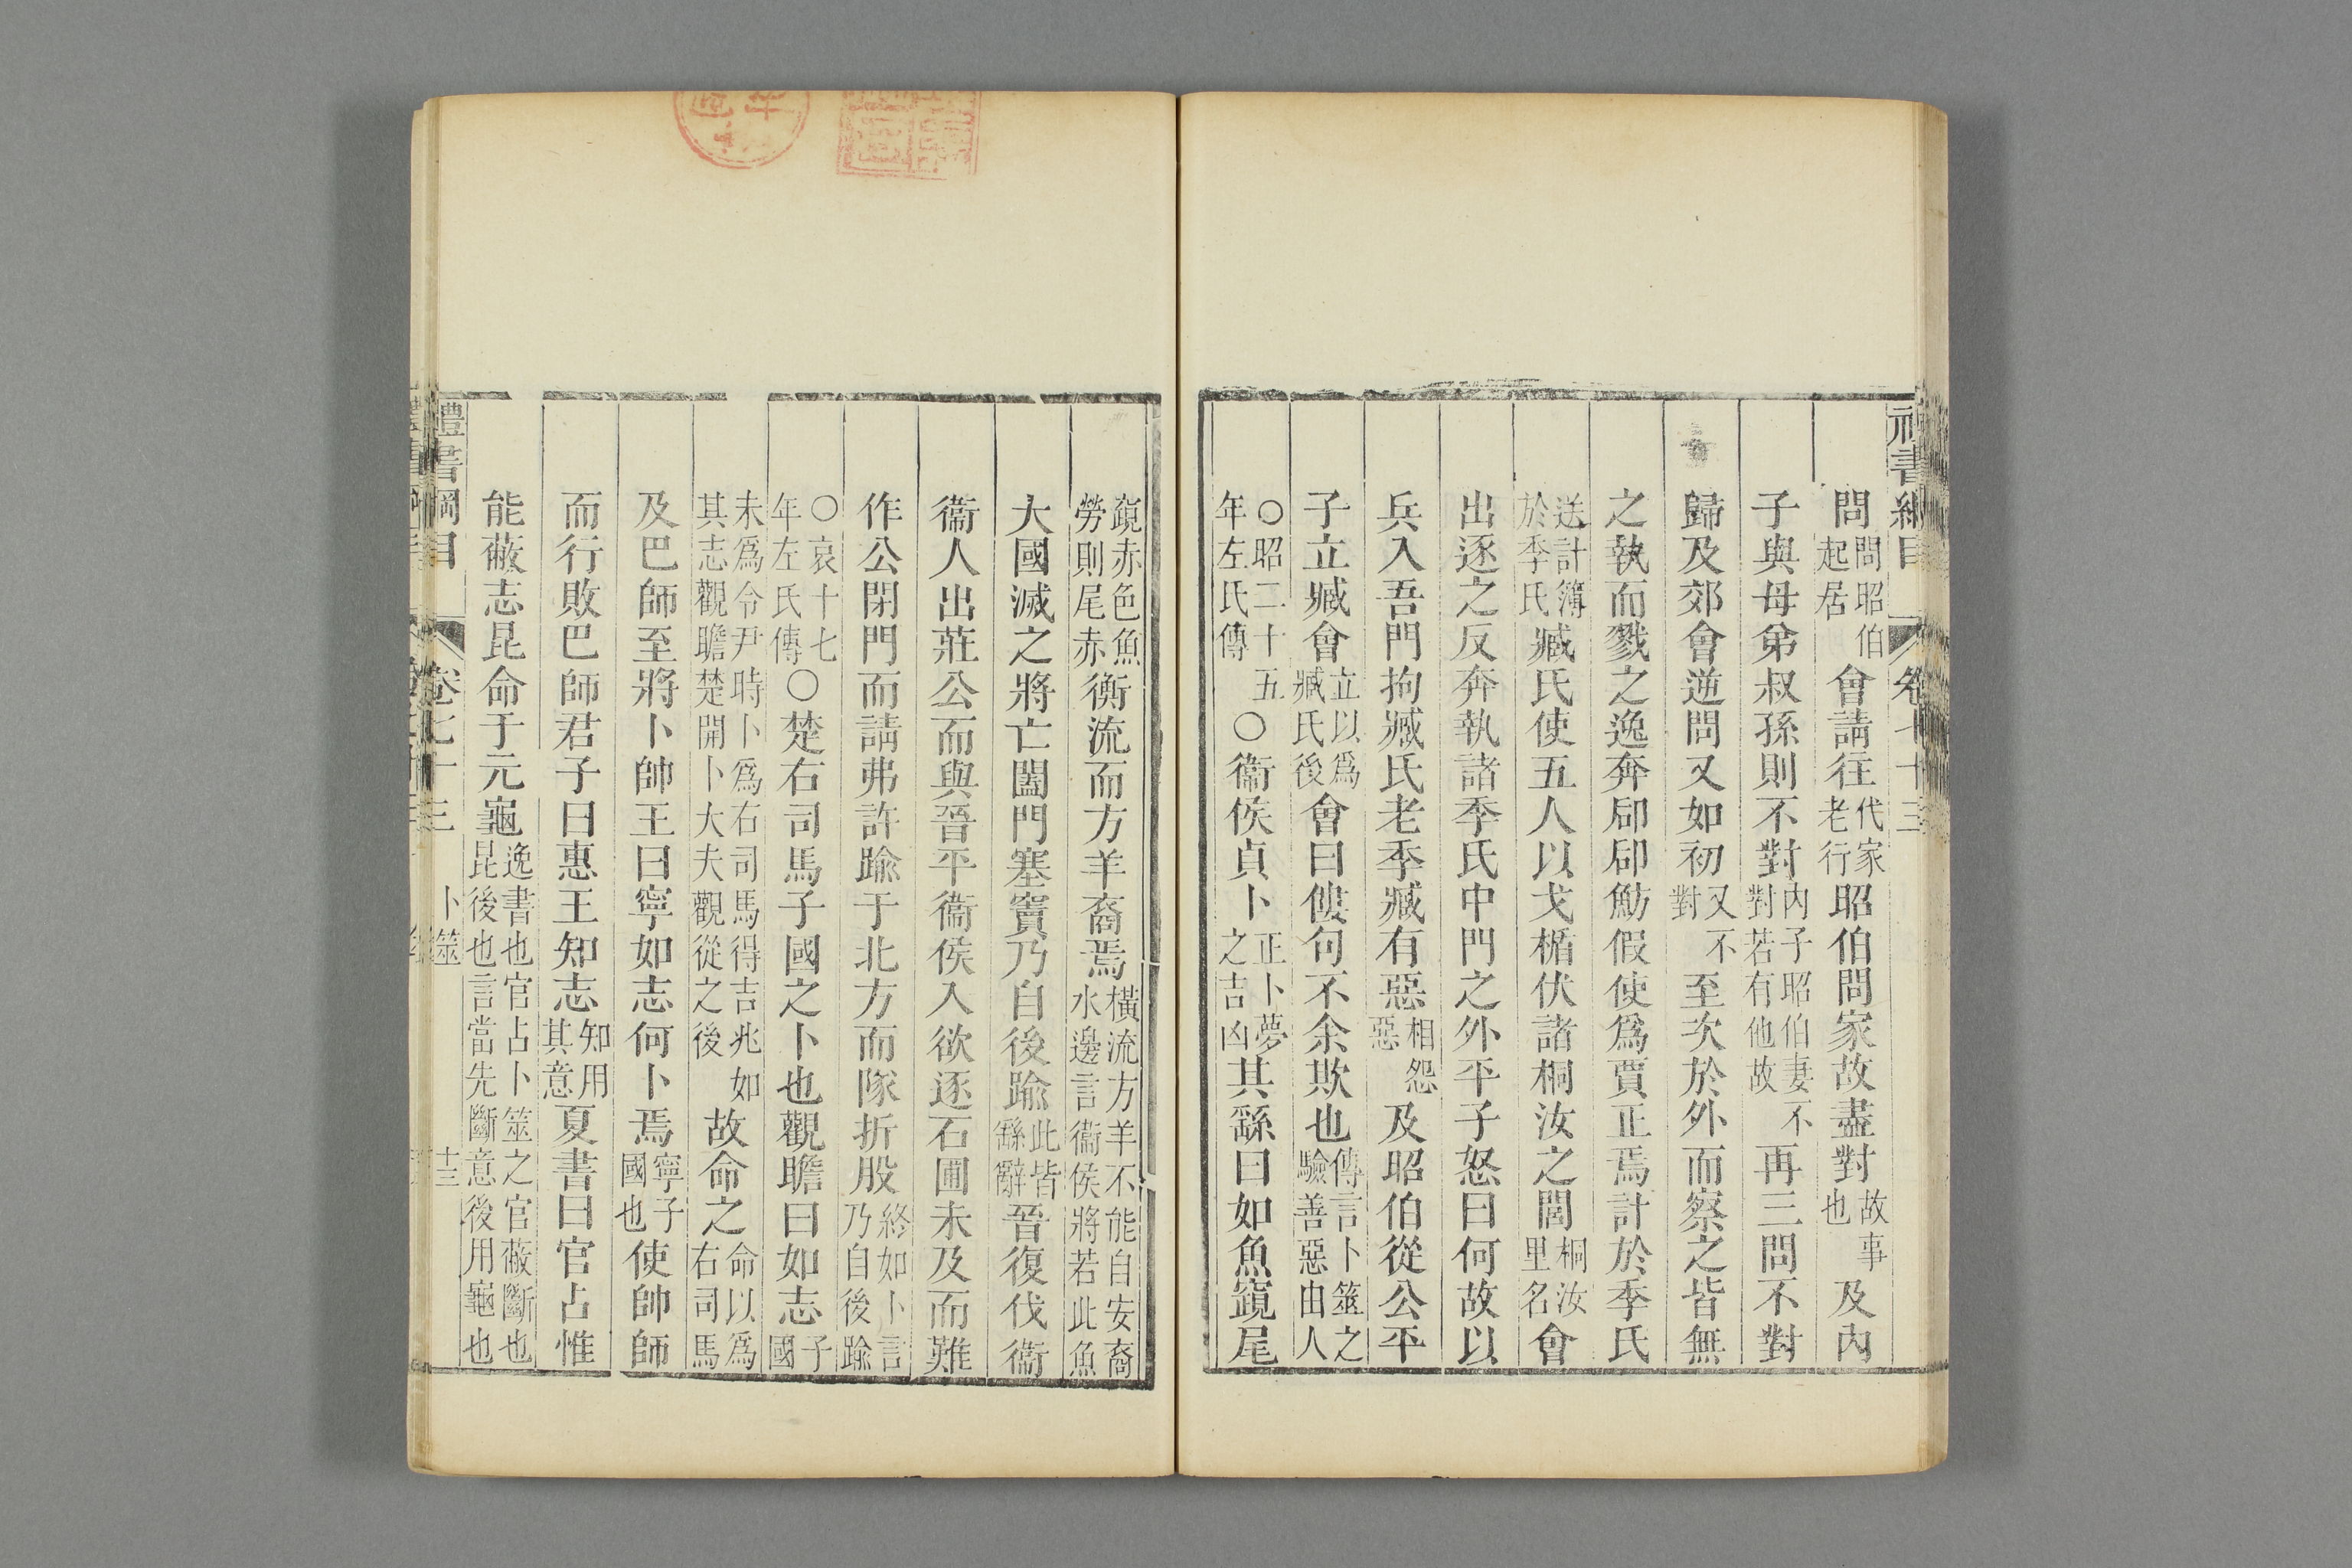 禮書綱目 卷七十三
問問昭伯起居會請往代家老行昭伯問家故盡對故事也及內
子與母弟叔孫則不對內子昭伯妻不對若有他故再三問不對
歸及郊會逆問又如初又不對至次於外而察之皆無
之執而戮之逸奔郈郈魴假使爲賈正焉計於季氏
送計簿於季氏臧氏使五人以戈楯伏諸桐汝之閭桐汝里名會
出逐之反奔執諸季氏中門之外平子怒曰何故以
兵入吾門拘臧氏老季臧有惡相怨惡及昭伯從公平
子立臧會立以爲臧氏後會曰僂句不余欺也傳言卜筮之驗善惡由人
○昭二十五年左氏傳○衞侯貞卜正卜夢之吉凶其繇曰如魚竀尾
竀赤色魚勞則尾赤衡流而方羊裔焉橫流方羊不能自安裔水邊言衞侯將若此魚
大國滅之將亡闔門塞竇乃自後踰此皆繇辭晉復伐衞
衞人出莊公而與晉平衞侯入欲逐石圃未及而難
作公閉門而請弗許踰于北方而隊折股終如卜言乃自後踰
○哀十七年左氏傳○楚右司馬子國之卜也觀瞻曰如志子國
未爲令尹時卜爲右司馬得吉兆如其志觀瞻楚開卜大夫觀從之後故命之命以爲右司馬
及巴師至將卜帥王曰寧如志何卜焉寧子國也使帥師
而行敗巴師君子曰惠王知志知用其意夏書曰官占惟
能蔽志昆命于元龜逸書也官占卜筮之官蔽斷也昆後也言當先斷意後用龜也
禮書綱目 卷七十三 卜筮 十三